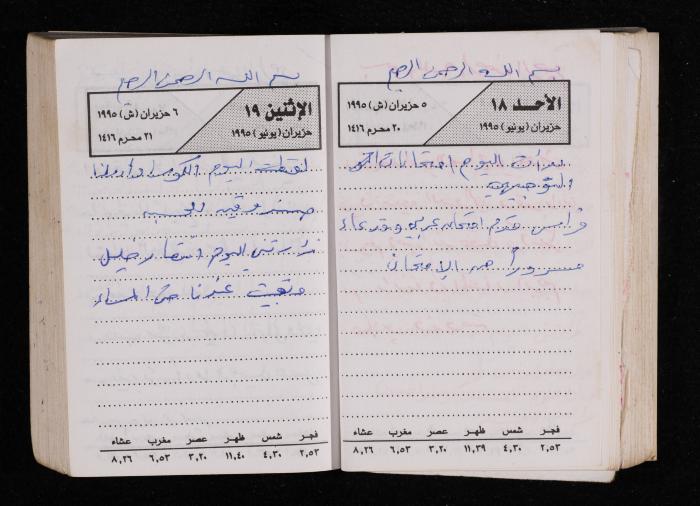 بسم الله الرحمن الرحيم
الأحد ١٨
حزيران (يونيو) ١٩٩٥
٥ حزيران (ش) ١٩٩٥
٢٠ محرم ١٤١٦
بدأت اليوم امتحانات
التوجيهي
فراس قدم امتحان عربي وقد جاء
مسروراً من الإمتحان
فجر شمس ظهر عصر مغرب عشاء
٢,٥٣ ٤,٣٠ ١١,٣٩ ٣,٢٠ ٦,٥٣ ٨,٢٦
بسم الله الرحمن الرحيم
الإثنين ١٩
حزيران (يونيو) ١٩٩٥
٦ حزيران (ش) ١٩٩٥
٢١ محرم ١٤١٦
اليوم
زارتني اليوم انتصار خليل
وبقيت عندنا حتى المساء
فجر شمس ظهر عصر مغرب عشاء
٢,٥٣ ٤,٣٠ ١١,٤٠ ٣,٢٠ ٦,٥٣ ٨,٢٦